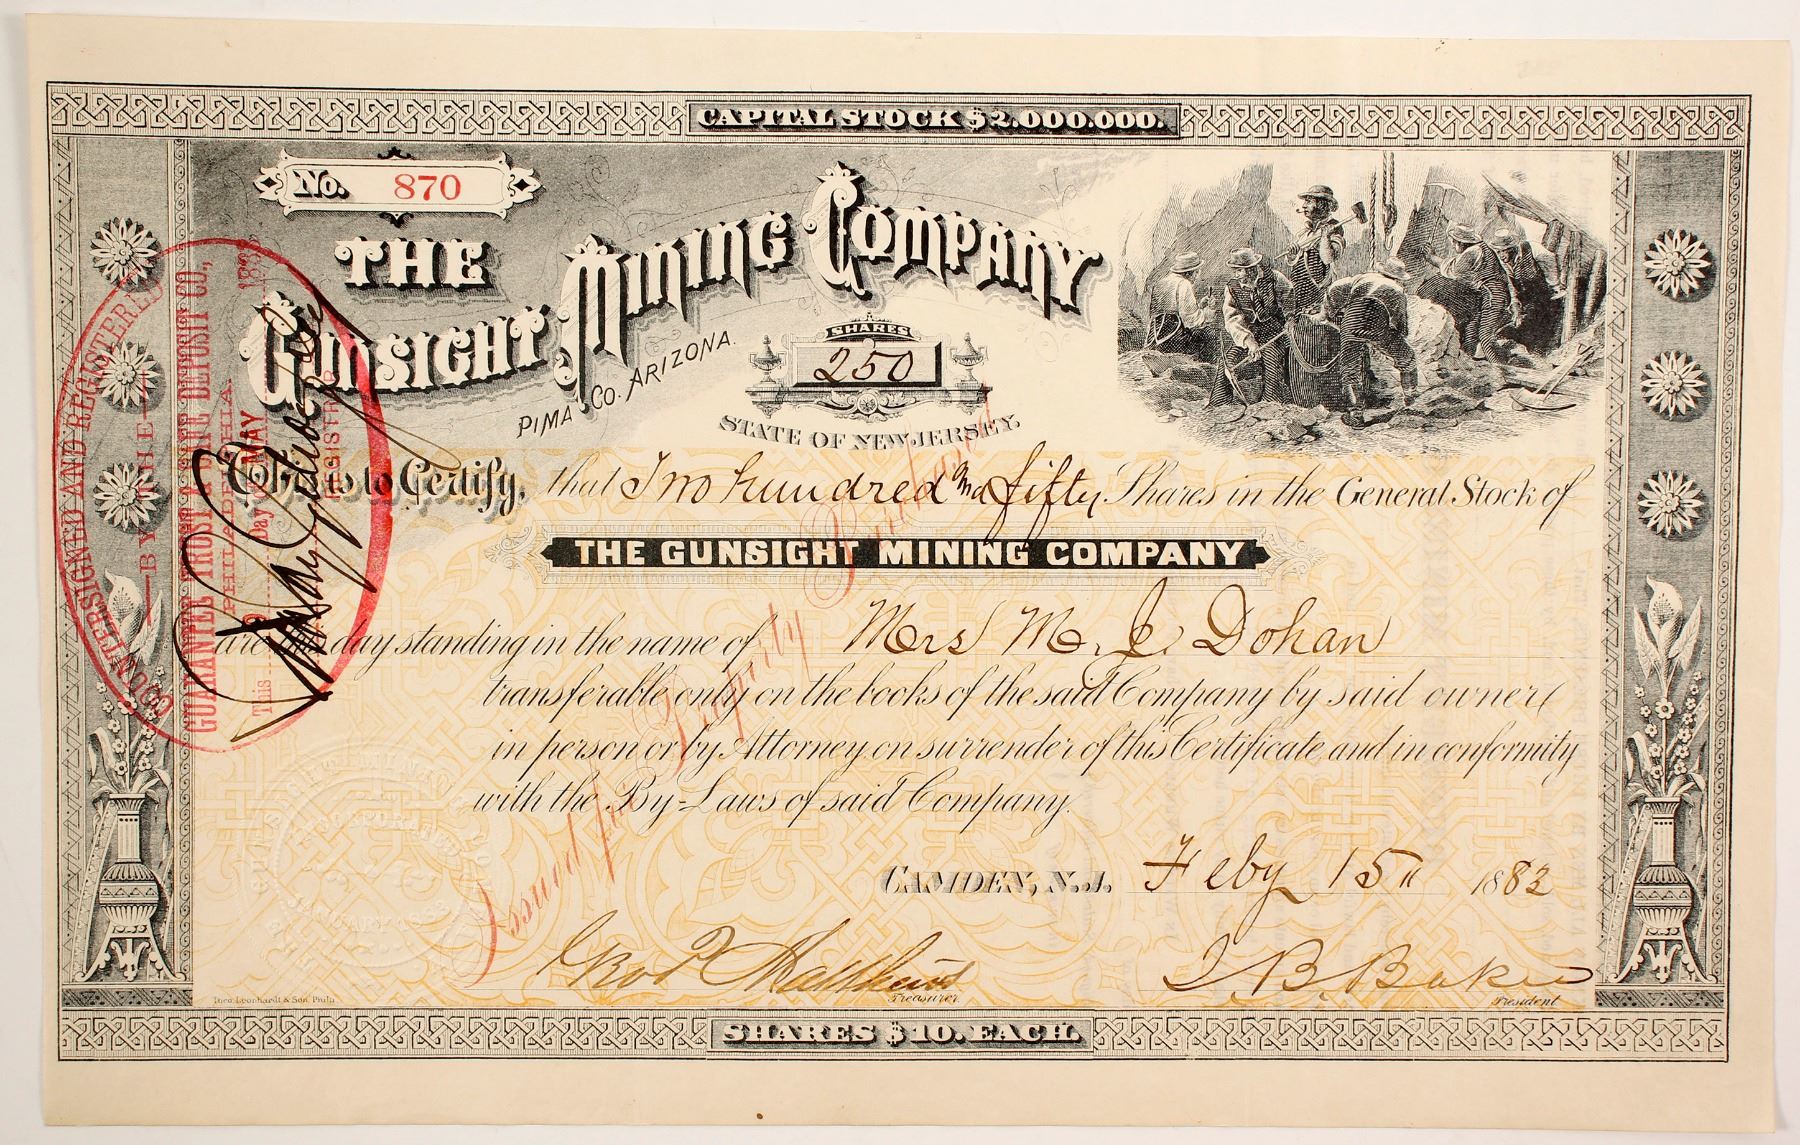 CAPITAL STOCK $2.000.000.
No. 870
THE
GUNSIGHT MINING COMPANY
PIMA CO. ARIZONA.
SHARES
250
STATE OF NEW JERSEY.
This is to Certify, that Two hundred and fifty Shares in the General Stock of
THE GUNSIGHT MINING COMPANY
are this day standing in the name of Mrs M. J. Dohan
transferable only on the books of the said Company by said owner
in person or by Attorney on surrender of this Certificate and in conformity
with the By-Laws of said Company.
CAMDEN, N.J. Feby 15 1883
Treasurer
J. B. Baker
President
Theo. Leonhardt & Son, Phila
SHARES $10. EACH.
COUNTERSIGNED AND REGISTERED
BY THE
GUARANTEE TRUST & SAFE DEPOSIT CO.,
PHILADELPHIA.
This Day of MAY 188
REGISTRAR
Issued for Property Purchased
INCORPORATED
JANUARY 1883